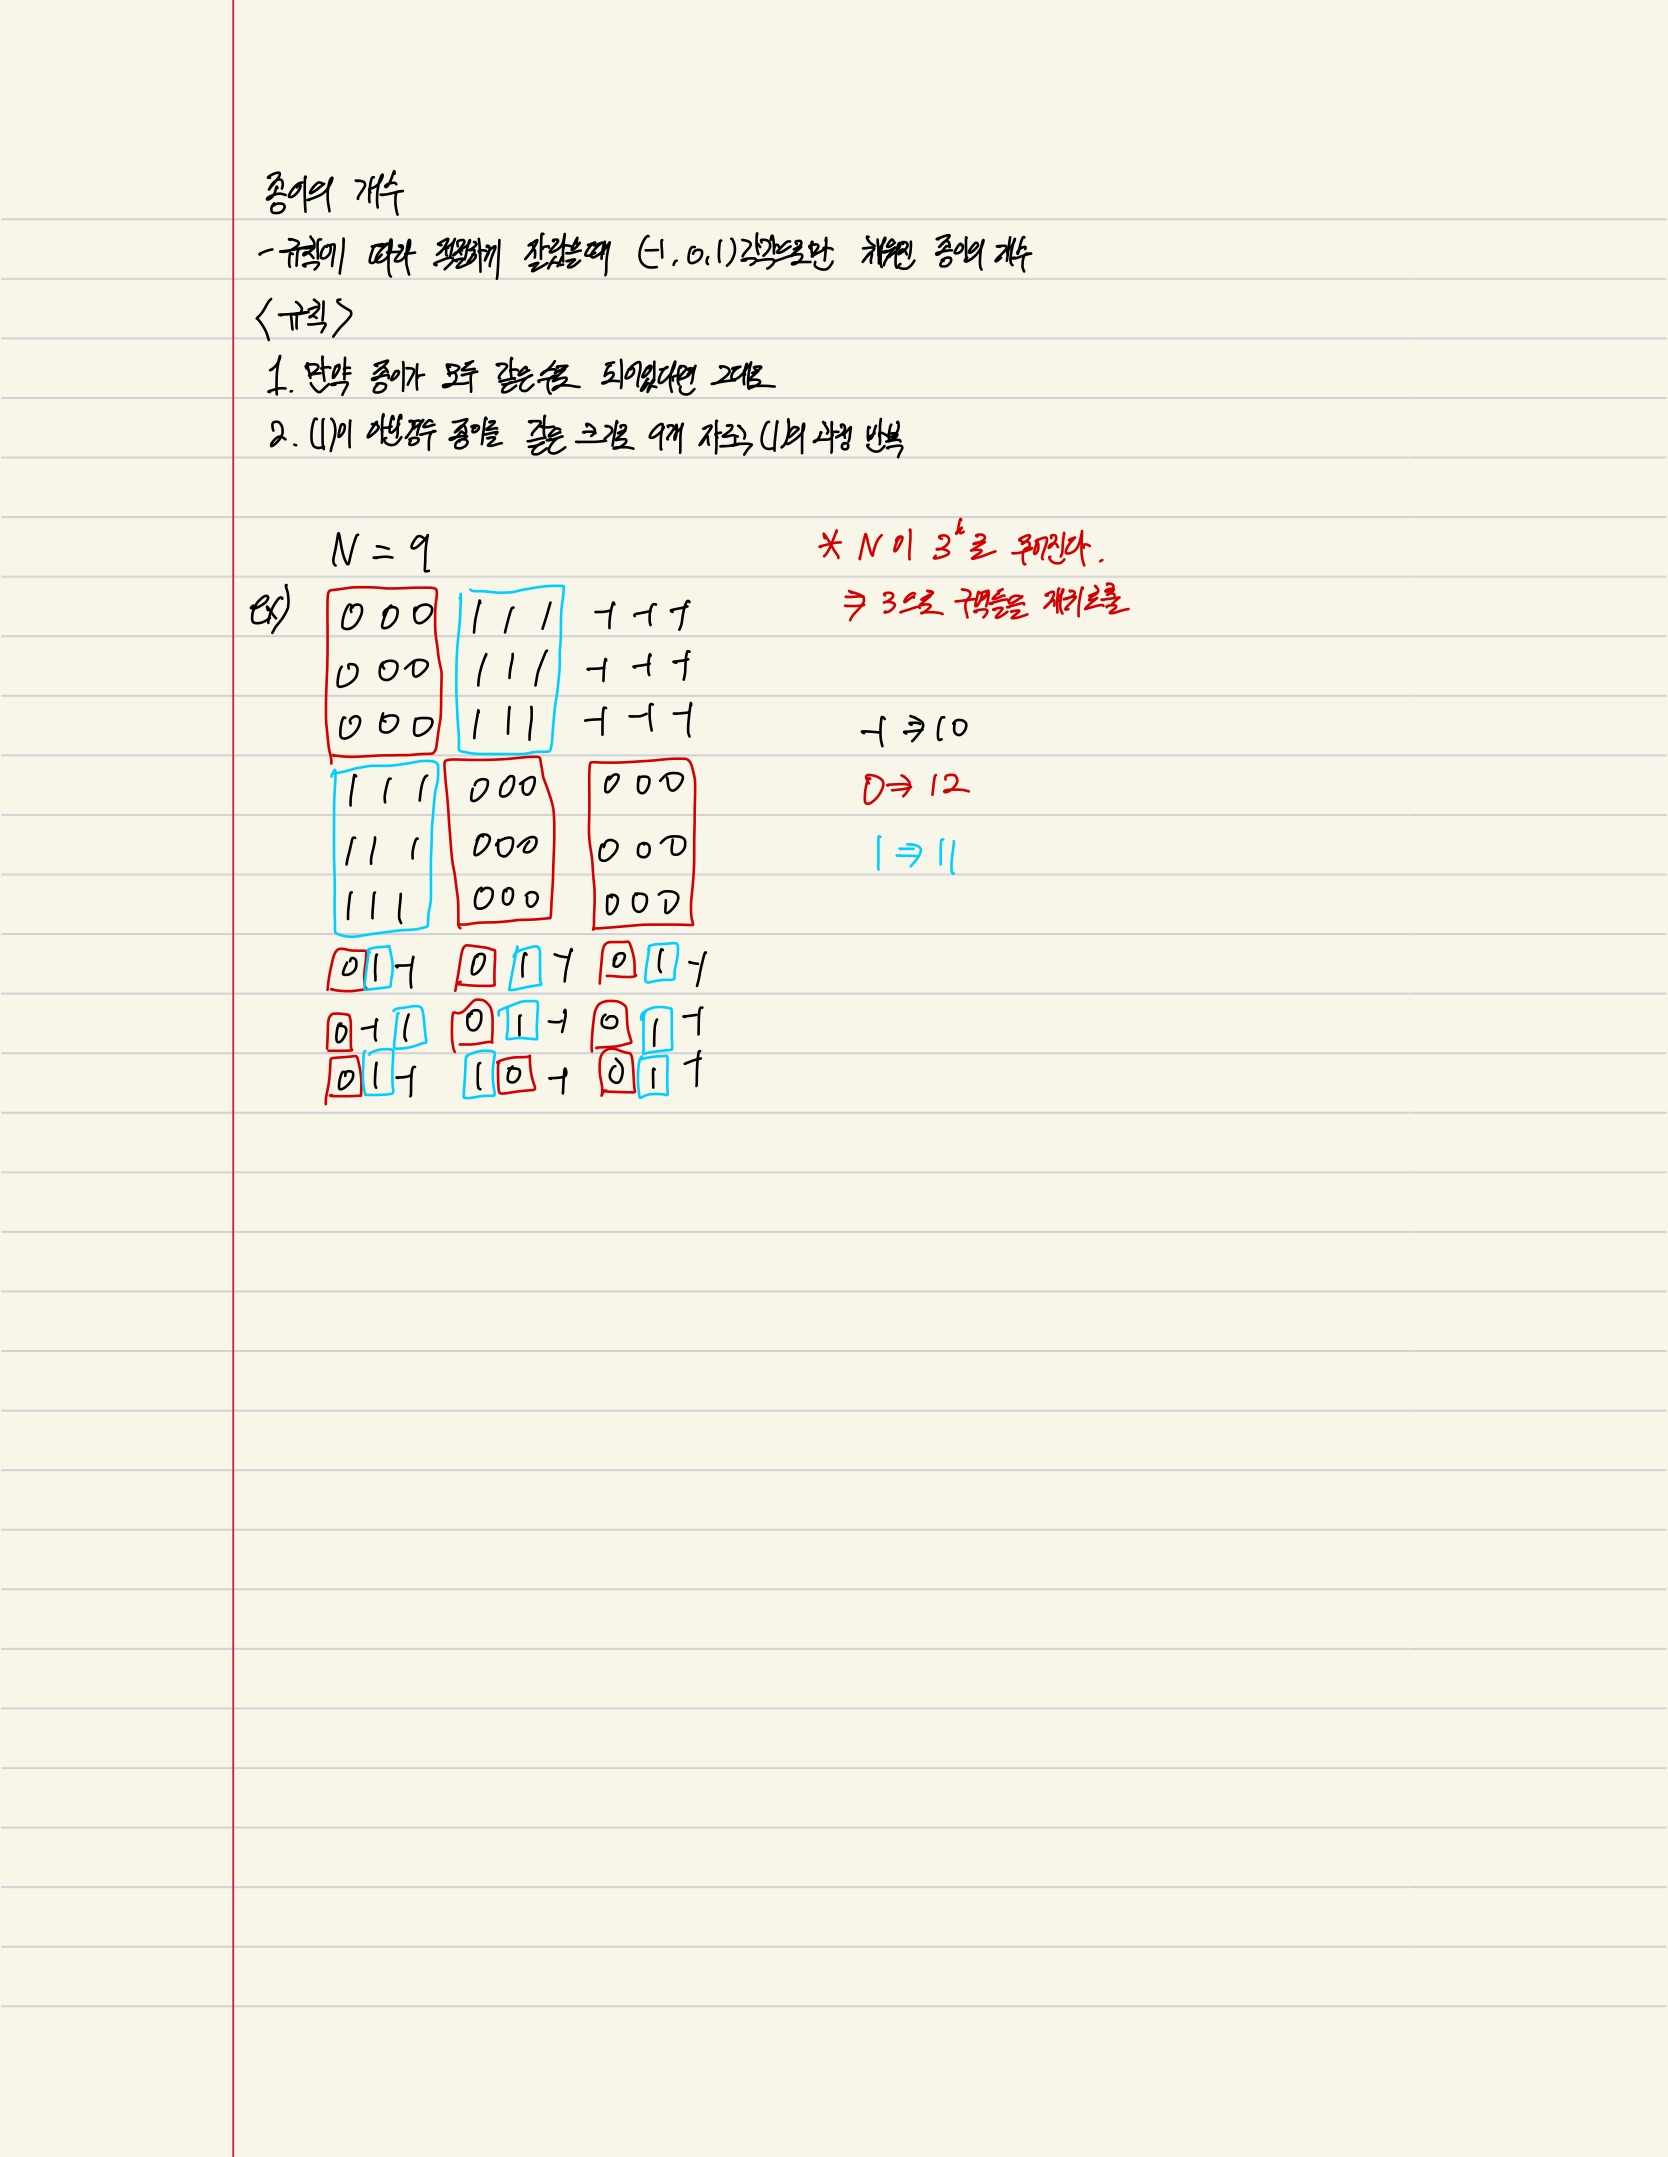 종이의 개수
- 규칙에 따라 적절하게 잘랐을때 (-1, 0, 1) 각각으로만 채워진 종이의 개수
<규칙>
1. 만약 종이가 모두 같은 수로 되어있다면 그대로
2. (1)이 아닌경우 종이를 같은 크기로 9개 자르고, (1)의 과정 반복
N = 9
* N이 3^k로 주어진다.
⇒ 3으로 구역들을 재귀로
ex)
0 0 0 1 1 1 -1 -1 -1
0 0 0 1 1 1 -1 -1 -1
0 0 0 1 1 1 -1 -1 -1
-1 ⇒ 10
1 1 1 0 0 0 0 0 0
0 ⇒ 12
1 1 1 0 0 0 0 0 0
1 ⇒ 11
1 1 1 0 0 0 0 0 0
0 1 -1 0 1 -1 0 1 -1
0 -1 1 0 1 -1 0 1 -1
0 1 -1 1 0 -1 0 1 -1